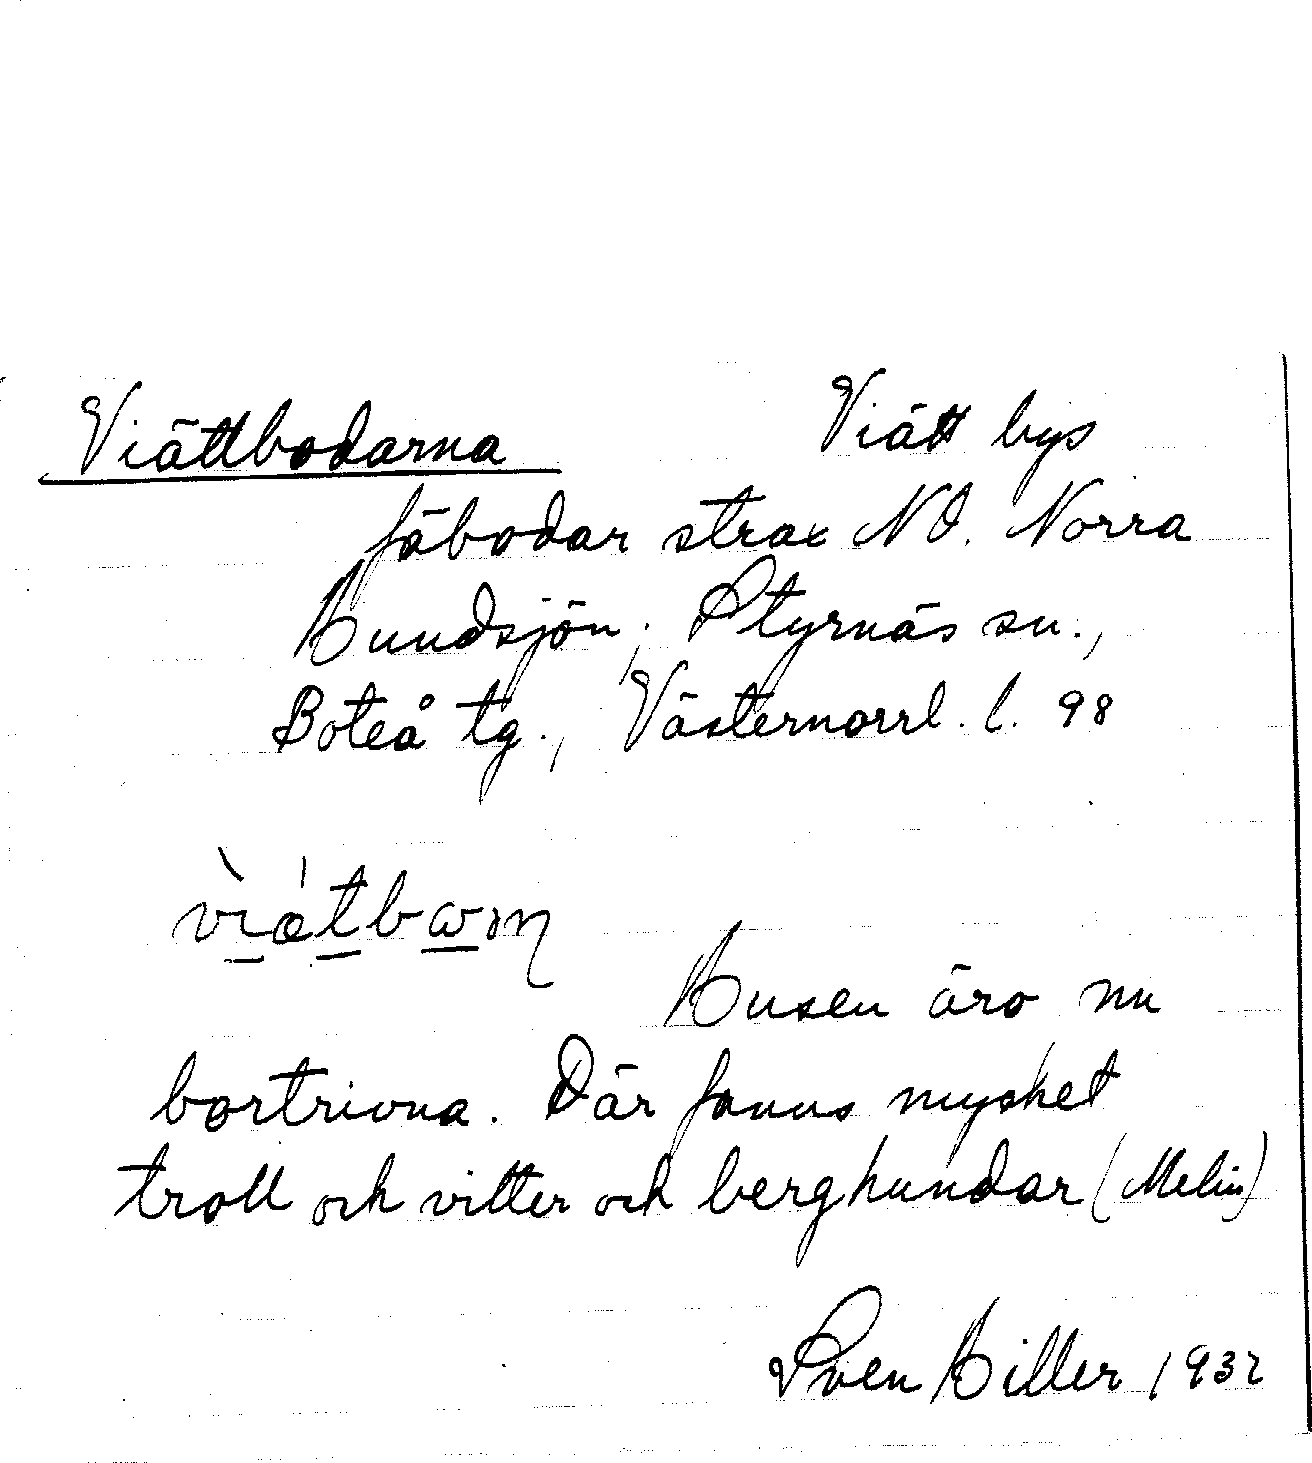 Viättbodarna Viätt bys
fäbodar strax NO. Norra
Hundsjön; Styrnäs sn.,
Boteå tg., Västernorrl. l. 98
Husen äro nu
bortrivna. Där fanns mycket
troll och vitter och berghundar (Melin)
Sven Hiller 1932